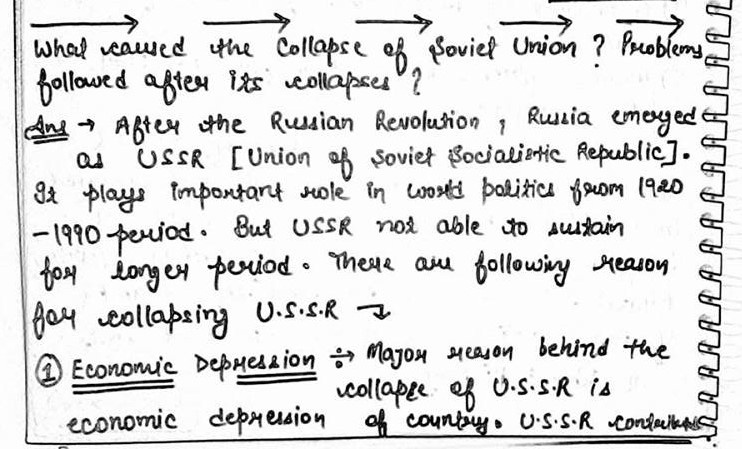 What caused the Collapse of Soviet Union ? Problems
followed after its collapses ?
Ans → After the Russian Revolution , Russia emerged
as USSR [Union of Soviet Socialistic Republic].
It plays important role in world politics from 1920
-1990 period. But USSR not able to sustain
for longer period. There are following reason
for collapsing U.S.S.R ↴
① Economic Depression ÷→ Major reason behind the
collapse of U.S.S.R is
economic depression of country. U.S.S.R